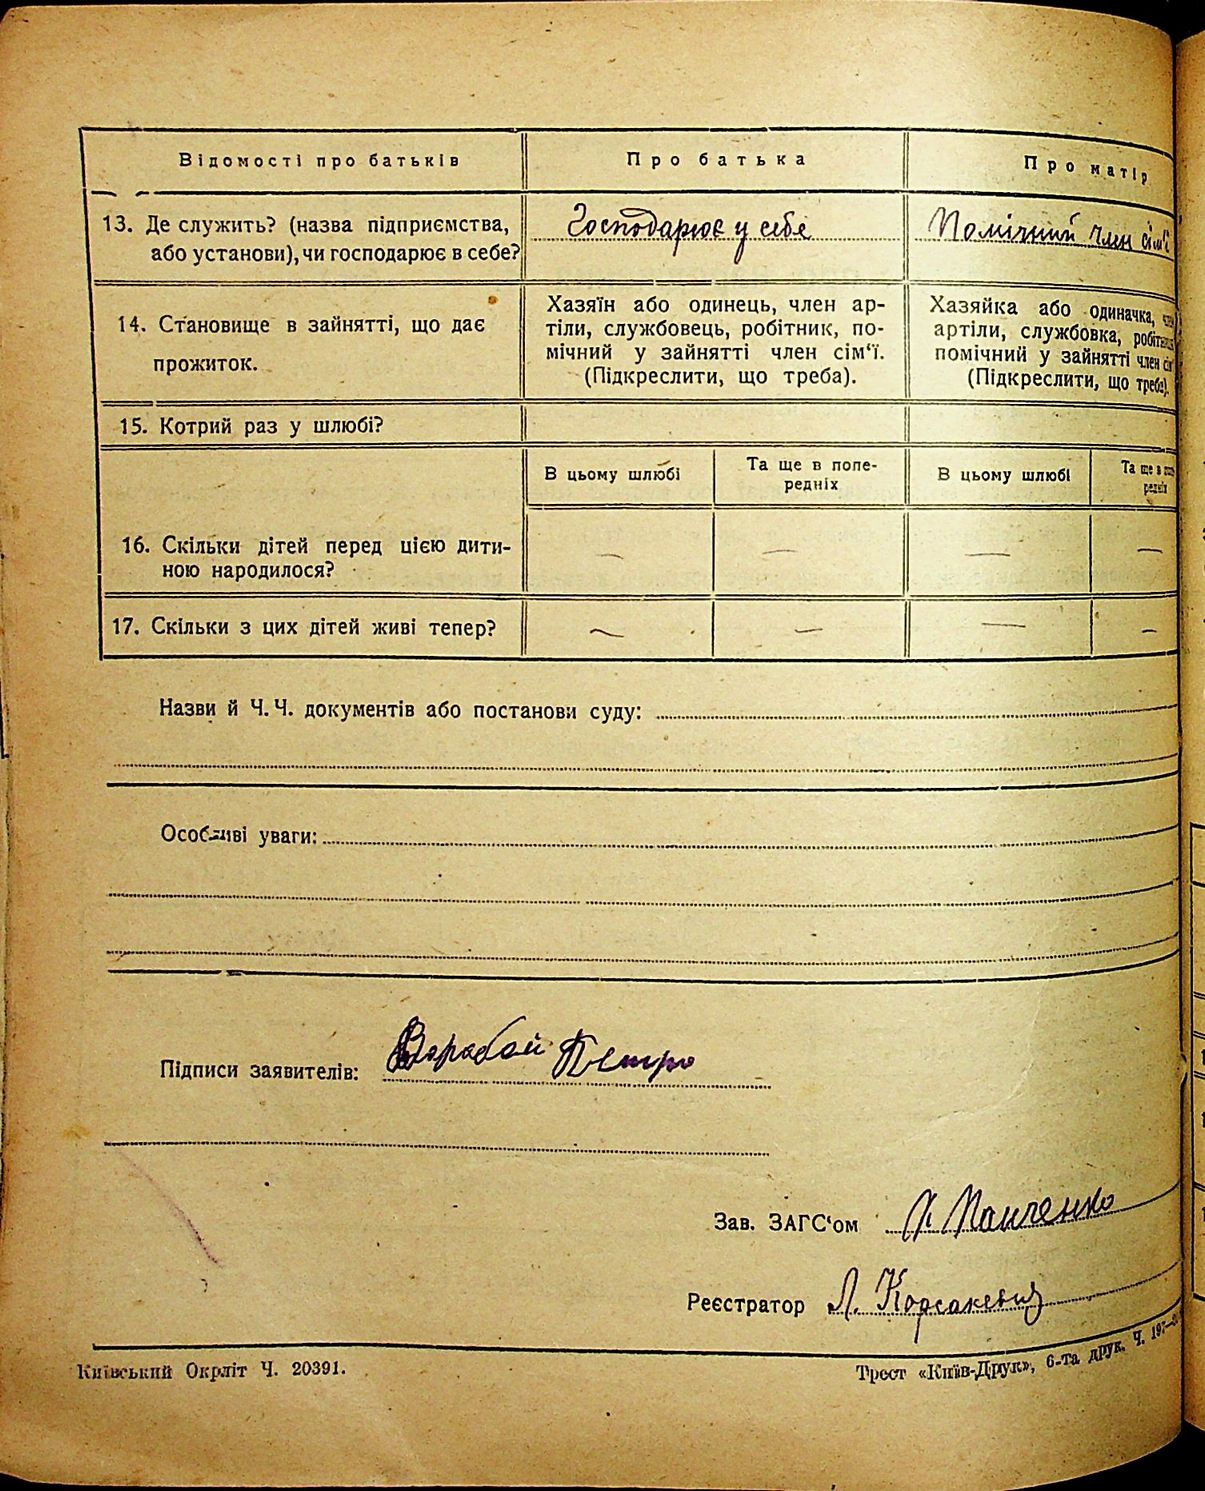 Відомості про батьків Про батька Про матір
13. Де служить? (назва підприємства, або установи), чи господарює в себе?
Господарює у себе
Помічний член сім'ї
14. Становище в зайнятті, що дає
прожиток.
Хазяїн або одинець, член ар-
тіли, службовець, робітник, по-
мічний у зайнятті член сім'ї.
(Підкреслити, що треба).
Хазяйка або одиначка,
артіли, службовка,
помічний у зайнятті член
(Підкреслити, що треба).
15. Котрий раз у шлюбі?
В цьому шлюбі
Та ще в попе-
редніх
В цьому шлюбі
Та ще в
16. Скільки дітей перед цією дити-
ною народилося?
— — — —
17. Скільки з цих дітей живі тепер?
— — — —
Назви й Ч. Ч. документів або постанови суду:
Особливі уваги:
Підписи заявителів: Воробой Петро
Зав. ЗАГС'ом Панченко
Реєстратор Л. Корсакевич
Київський Окрліт Ч. 20391.
Трест «Київ-Друк», 6-та друк. Ч.